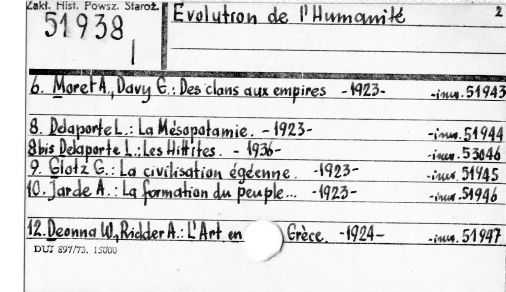 Zakł. Hist. Powsz. Staroż.
51938
I
Evolution de l'Humanité
2
6. Moret A., Davy G.: Des clans aux empires -1923- -inw. 51943
8. Delaporte L.: La Mésopotamie. -1923- -inw. 51944
8bis Delaporte L.: Les Hittites. - 1936- -inw. 53046
9. Glotz G.: La civilisation égéenne. -1923- -inw. 51945
10. Jarde A.: La formation du peuple... -1923- -inw. 51946
12. Deonna W., Ridder A.: L'Art en Grèce. -1924- -inw. 51947
DUJ 897/73. 15000